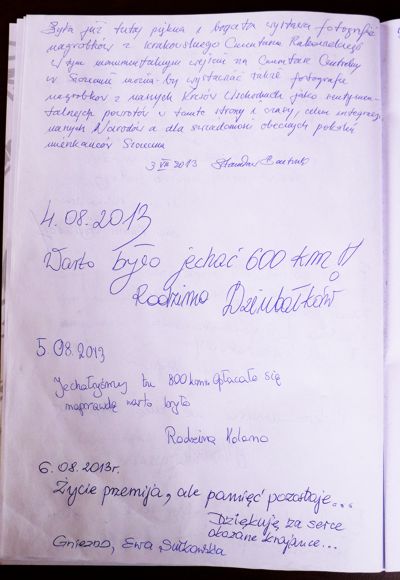 Była już tutaj piękna i bogata wystawa fotografii
nagrobków z krakowskiego Cmentarza Rakowickiego
W tym monumentalnym wejściu na Cmentarz Centralny
w Szczecinie można by wystawiać także fotografie
nagrobków z naszych Kresów Wschodnich jako sentymen-
talnych powrotów w tamte strony i czasy, celem integracji
naszych Narodów a dla świadomości obecnych pokoleń
mieszkańców Szczecina
3 VIII 2013 Stanisław
4.08.2013
Warto było jechać 600 km!!
Rodzina Dziubałków
5.08.2013
Jechałyśmy tu 800 km. Opłacało się
naprawdę warto było
Rodzina Kolano
6.08.2013r.
Życie przemija, ale pamięć pozostaje...
Dziękuję za serce
okazane krajance...
Gniezno, Ewa Sulkowska